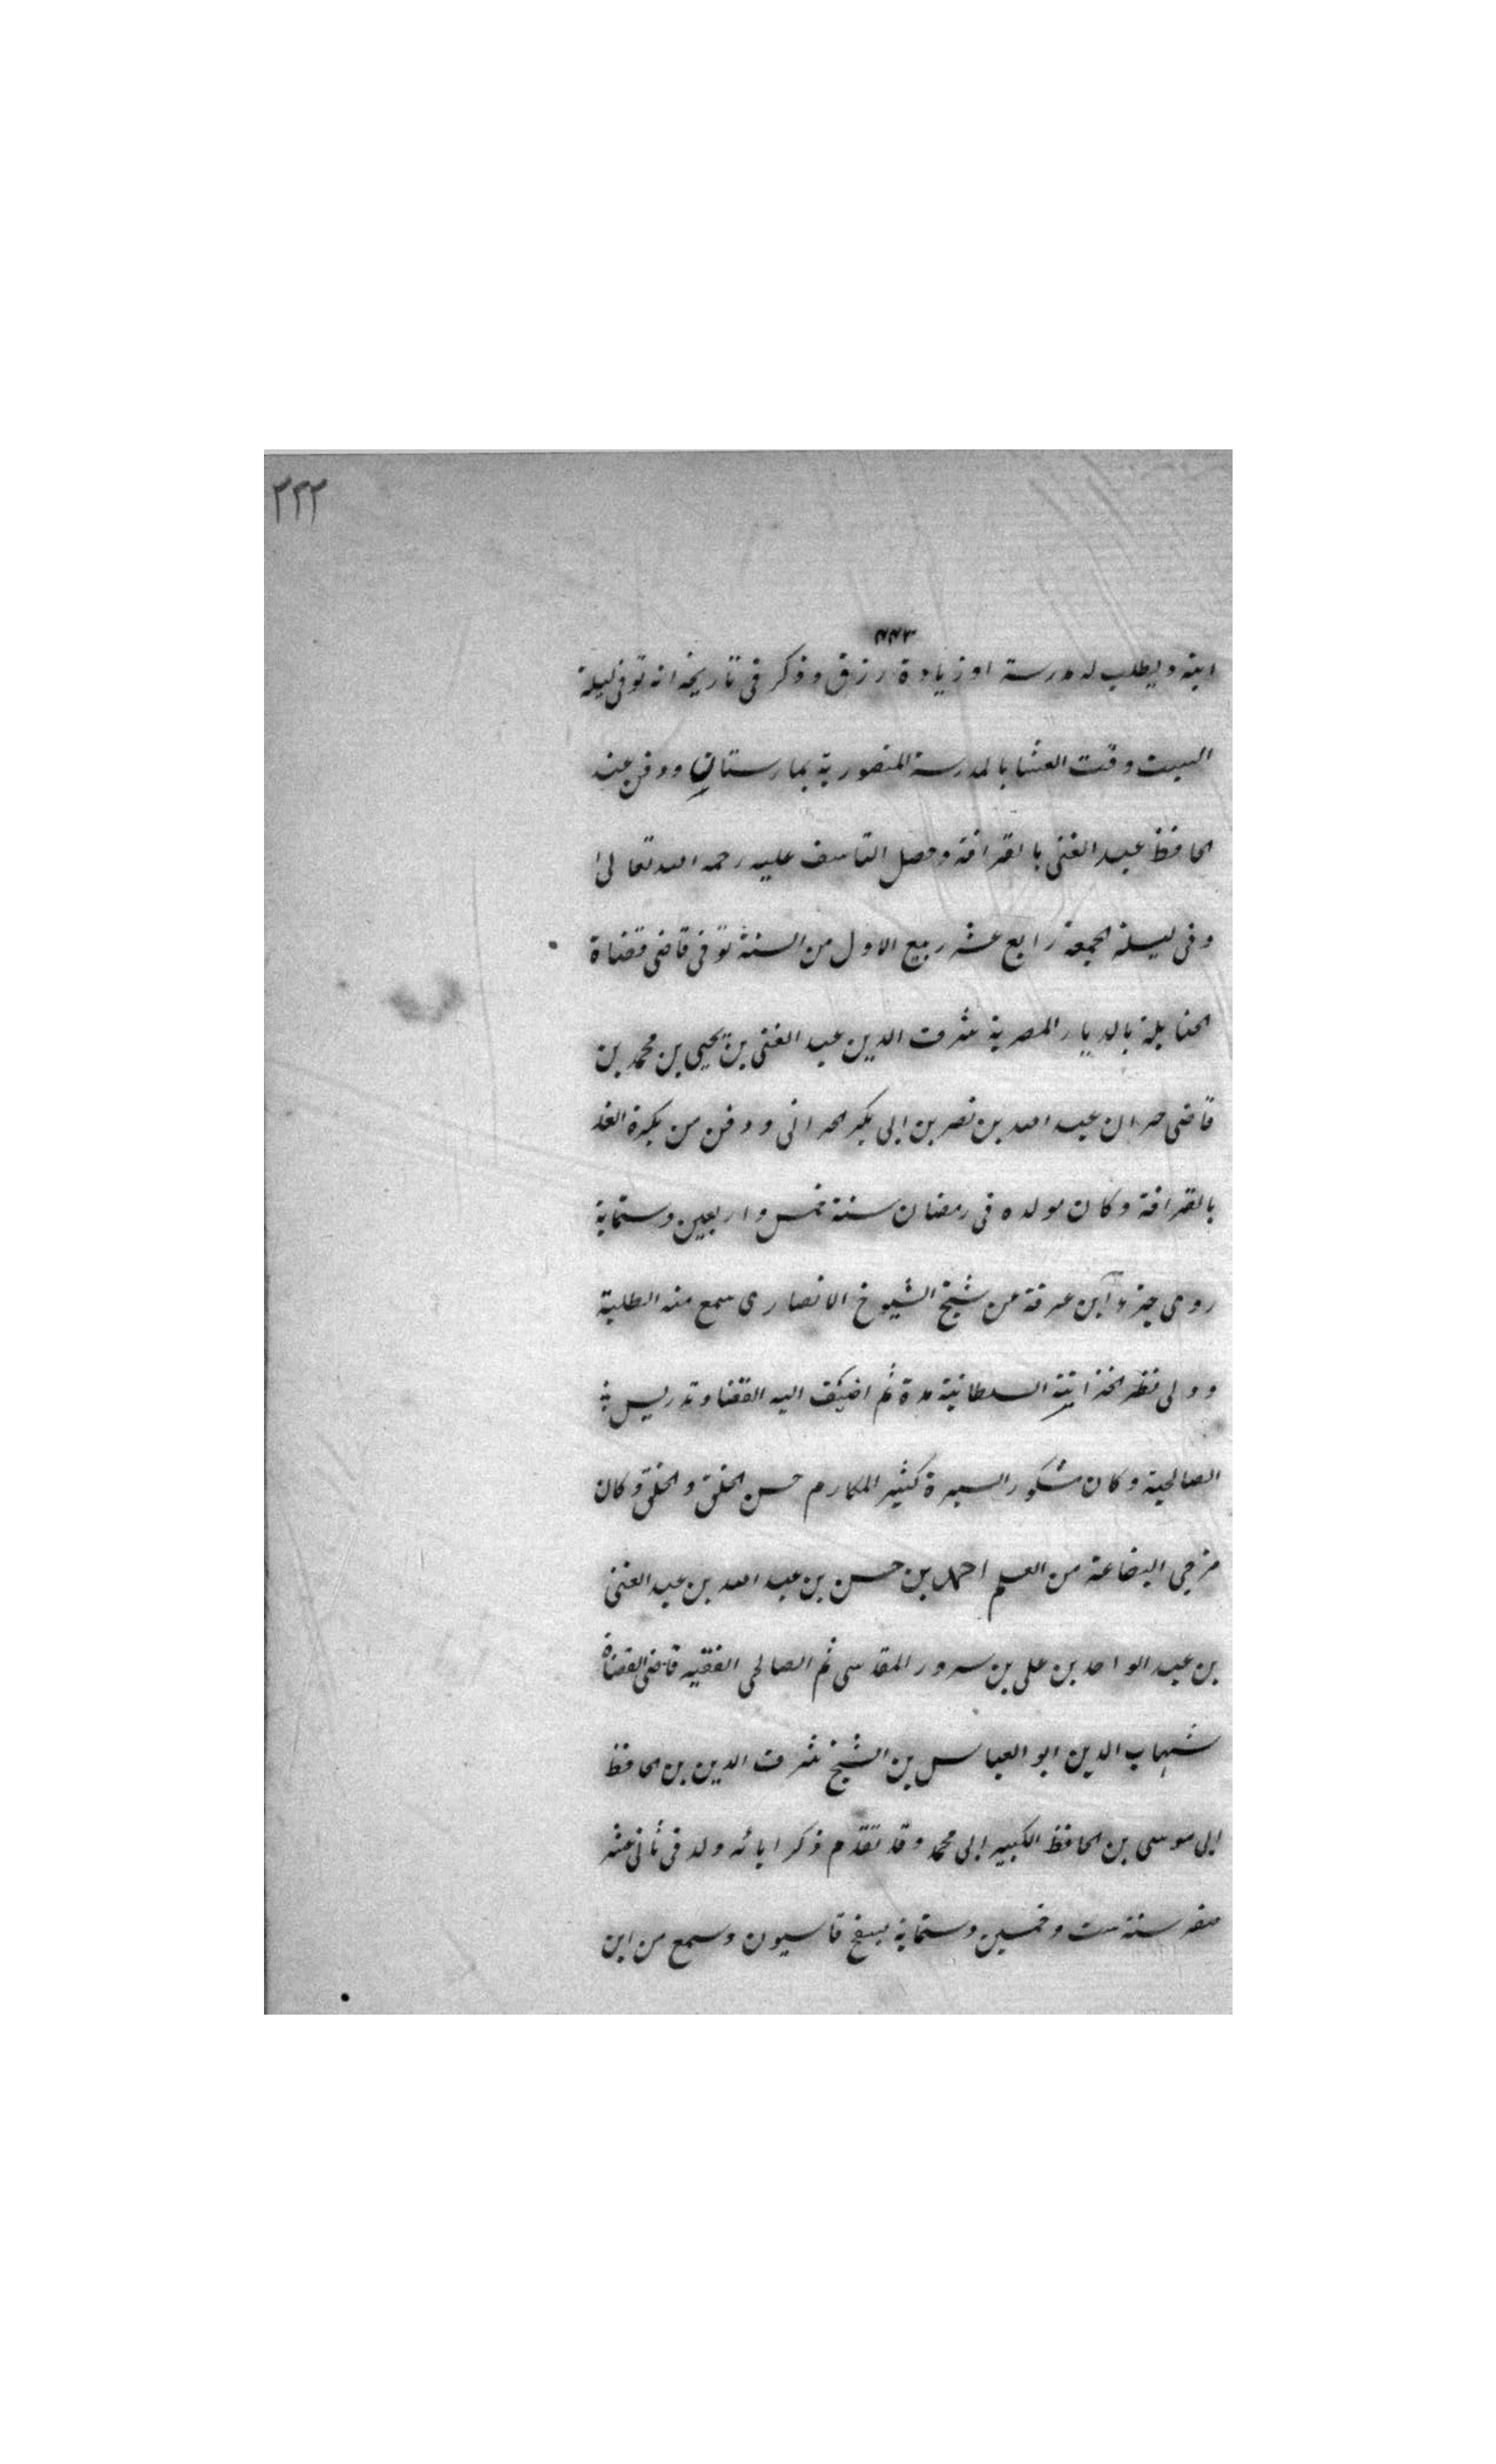 ٣٢٢
ابنه ويطلب له مدرسة او زيادة رزق وذكر فى تاريخه انه توفى ليلة
السبت وقت العشا بالمدرسة المنصورية بمارستان ودفن عند
الحافظ عبد الغنى بالقرافة وحصل التاسف عليه رحمه الله تعالى
وفى ليلة الجمعة رابع عشر ربيع الاول من السنة توفى قاضى قضاة
الحنابلة بالديار المصرية شرف الدين عبد الغنى بن يحيى بن محمد بن
قاضى حران عبد الله بن نصر بن ابى بكر الحرانى ودفن من بكرة الغد
بالقرافة وكان مولده فى رمضان سنة خمس واربعين وستماية
روى جزء ابن عرفة عن شيخ الشيوخ الانصارى سمع منه الطلبة
وولى نظر الخزانة السلطانية مدة ثم اضيف اليه القضا وتدريس
الصالحية وكان مشكور السيرة كثير المكارم حسن الخلق والخلق وكان
مزجى البضاعة من العلم احمد بن حسن بن عبد الله بن عبد الغنى
بن عبد الواحد بن على بن سرور المقدسى ثم الصالحى الفقيه قاضى القضاة
شهاب الدين ابو العباس بن الشيخ شرف الدين بن الحافظ
ابى موسى بن الحافظ الكبير ابى محمد وقد تقدم ذكر ابائه ولد فى ثانى عشر
صفر سنة ست وخمسين وستماية بسفح قاسيون وسمع من ابن